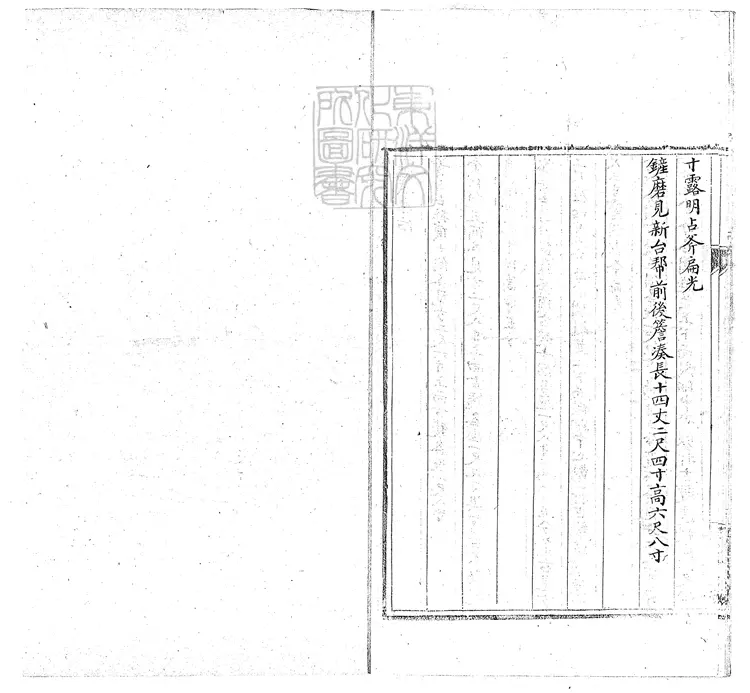 寸露明占斧扁光
鏟磨見新台幫前後簷湊長十四丈二尺四寸高六尺八寸
東洋文
化研究
所圖書